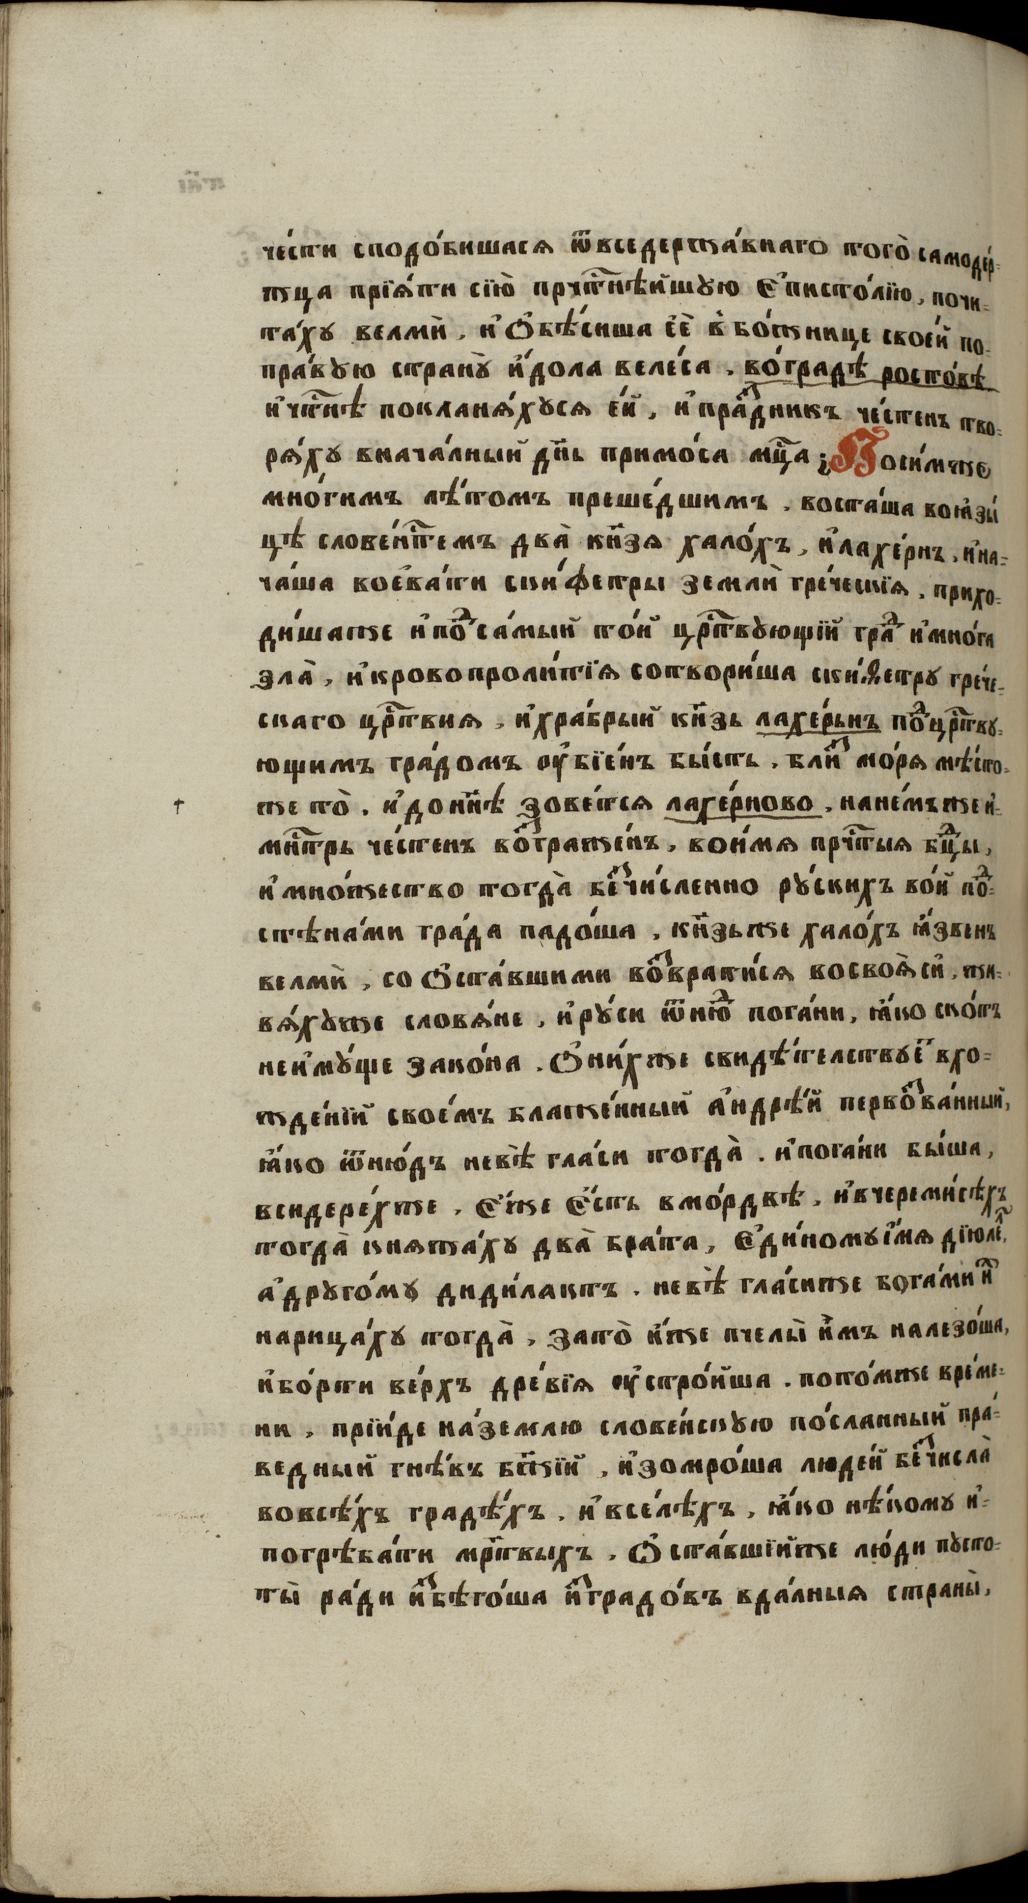 че́сти сподо́бишася ѿвседержа́внаго того̀ самоде́р-
жца прїѧ́ти сїю̀ пречⷭ҇тнѣ́йшꙋю є҆пистолїю, почи-
та́хꙋ велмѝ, и҆ѡ҆бѣ́сиша є҆ѐ в̾ бо́жнице свое́й по-
пра́вꙋю странꙋ̀ и҆́дола веле́са. во́градѣ росто́вѣ
и҆чⷭ҇тнѣ покланѧ́хꙋсѧ є҆́й, и҆пра́ꙁдникъ че́стенъ тво-
рѧ́хꙋ внача́лный дн҃ь примо́са мцⷭ҇а ; Поси́мже
мно́гимъ лѣ́томъ преше́дшимъ. воста́ша воꙗ҆зы́
цѣ слове́нстемъ два̀ кн҃зѧ хало́хъ, и҆лахе́рнъ, и҆на-
ча́ша воева́ти ски́ѳетры землѝ гре́ческїѧ. прихо-
ди́шаже и҆поⷣса́мый то́й црⷭ҇твꙋющїй граⷣ и҆мно́га
зла̀, и҆кровопроли́тїѧ сотвори́ша ски́ѳетрꙋ грече-
скаго црⷭ҇твиѧ, и҆хра́брый кн҃зь лахе́рьнъ поⷣцрⷭ҇твꙋ-
ющимъ гра́домъ ᲂу҆бїе́нъ бы́сть. близъ мо́рѧ мѣ́сто-
же то̀. и҆дон҃нѣ зове́тсѧ лахе́рново. нане́мъже и҆-
мнⷭ҇трь че́стенъ воⷥграже́нъ, воимѧ прчⷭ҇тыѧ бцⷣы,
и҆мно́жество тогда̀ беⷥчи́сленно рꙋ́скихъ во́й поⷣ-
стѣна́ми гра́да падо́ша, кн҃зьже хало́хъ ꙗ҆́звенъ
велмѝ, со ѡ҆ста́вшими воⷥврати́сѧ восвоѧ̀сѝ, жи-
вѧ́хꙋже словѧ́не, и҆рꙋ́си ѿнюⷣ пога́ни, ꙗ҆́ко ско́тъ
неи҆мꙋ́ще зако́на. ѡ҆ни́хже свидѣ́телствꙋеⷮ вхо-
жде́нїй свое́мъ блаже́нный а҆ндре́й первоⷥва́нный,
ꙗ҆́ко ѿню́дъ невѣ̀гла́си тогда̀. и҆пога́ни бы́ша,
всидере́хже. є҆́же є҆́сть вмо́рдвѣ. и҆вчереми́сѣхъ
тогда̀ кнѧжа́хꙋ два̀ бра́та, є҆ди́номꙋ и҆́мѧ дїюлеⷭ҇,
а҆дрꙋго́мꙋ диди́лактъ. невѣ̀гла́сиже бога́ми иⷯ
нарица́хꙋ тогда̀, зато̀ и҆́же пчелы̀ и҆̀мъ налезо́ша,
и҆бо́рти ве́рхъ дре́вїѧ ᲂу҆стро́йша. пото́мже вре́ме-
ни, прїи́де на́землю слове́нскꙋю по́сланный пра́-
ведный гнѣ́въ бж҃їй, и҆зомро́ша люде́й беⷥчисла̀
вовсѣ́хъ градѣ́хъ. и҆все́лѣхъ, ꙗ҆́ко нѣ́комꙋ и҆-
погрѣба́ти мрⷭ҇твыхъ. ѡ҆ста́вшїйже лю́ди пꙋсто-
ты̀ ра́ди и҆ⷥбѣго́ша и҆ⷥградо́въ вда́лныѧ страны̀,